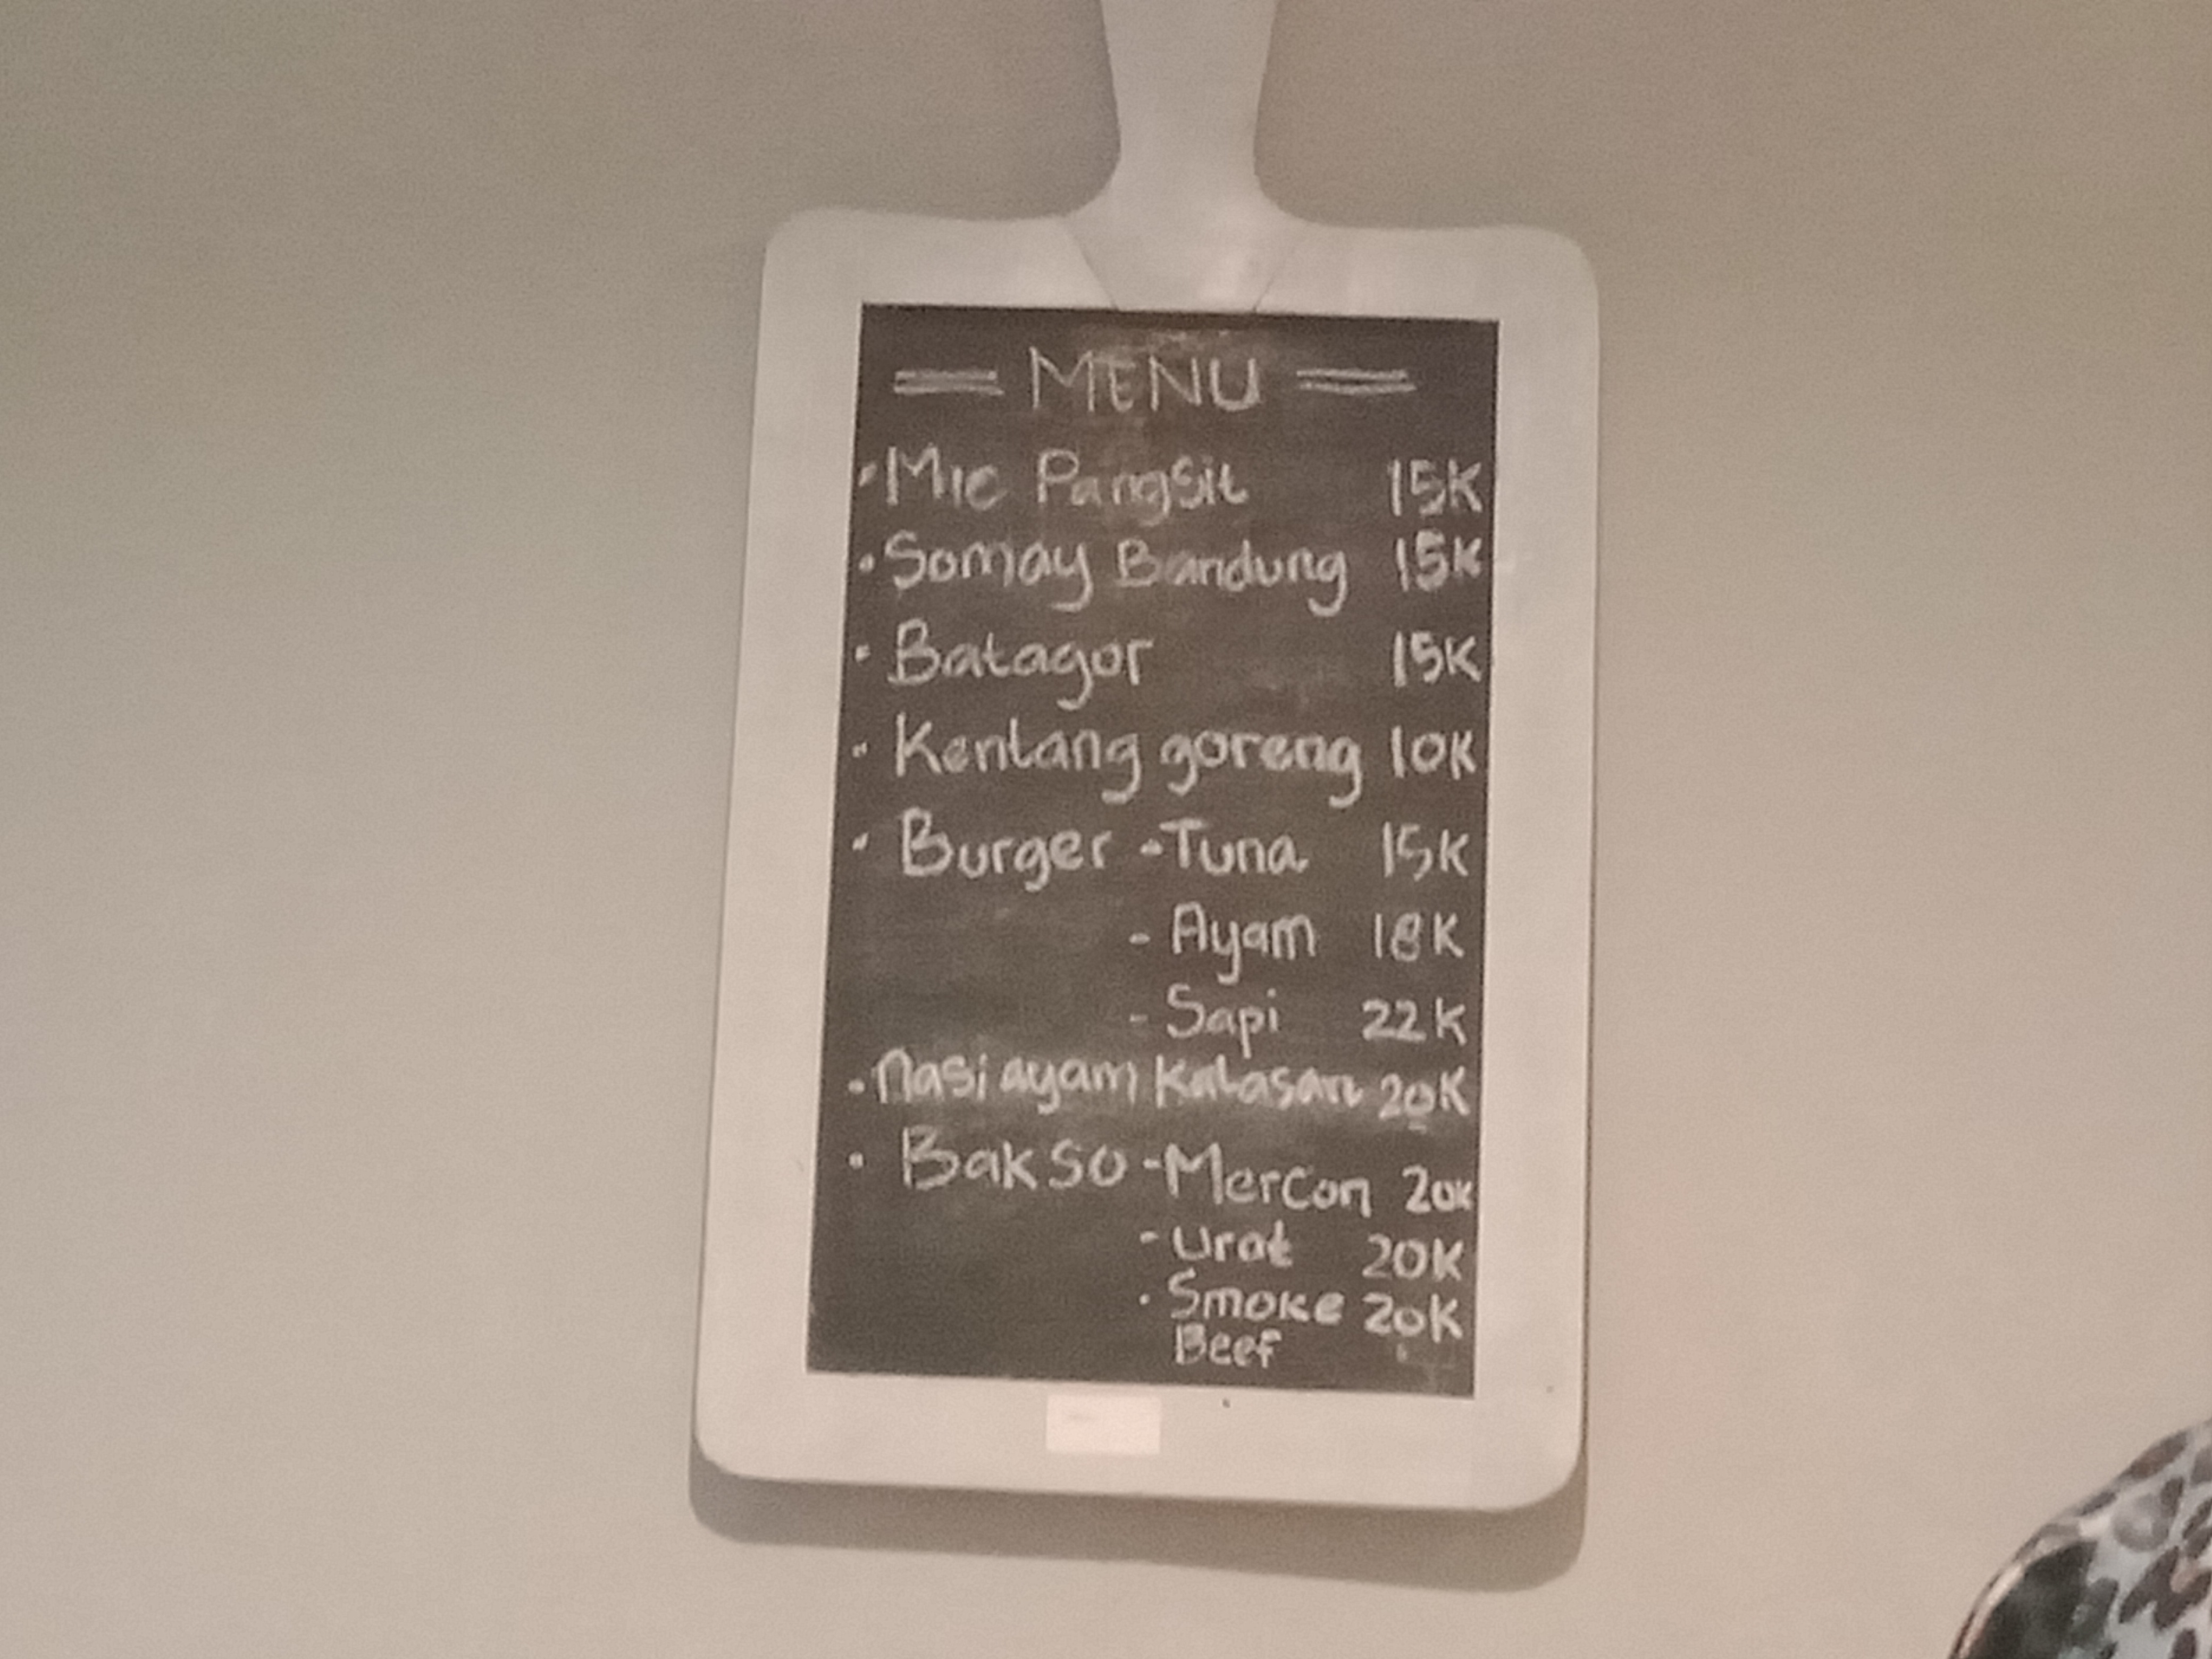 MENU
• Mie Pangsit 15K
• Somay Bandung 15K
• Batagor 15K
• Kentang goreng 10K
• Burger - Tuna 15K
- Ayam 18K
- Sapi 22K
• Nasi ayam Kalasan 20K
• Bakso - Mercon 20K
- Urat 20K
• Smoke 20K
Beef